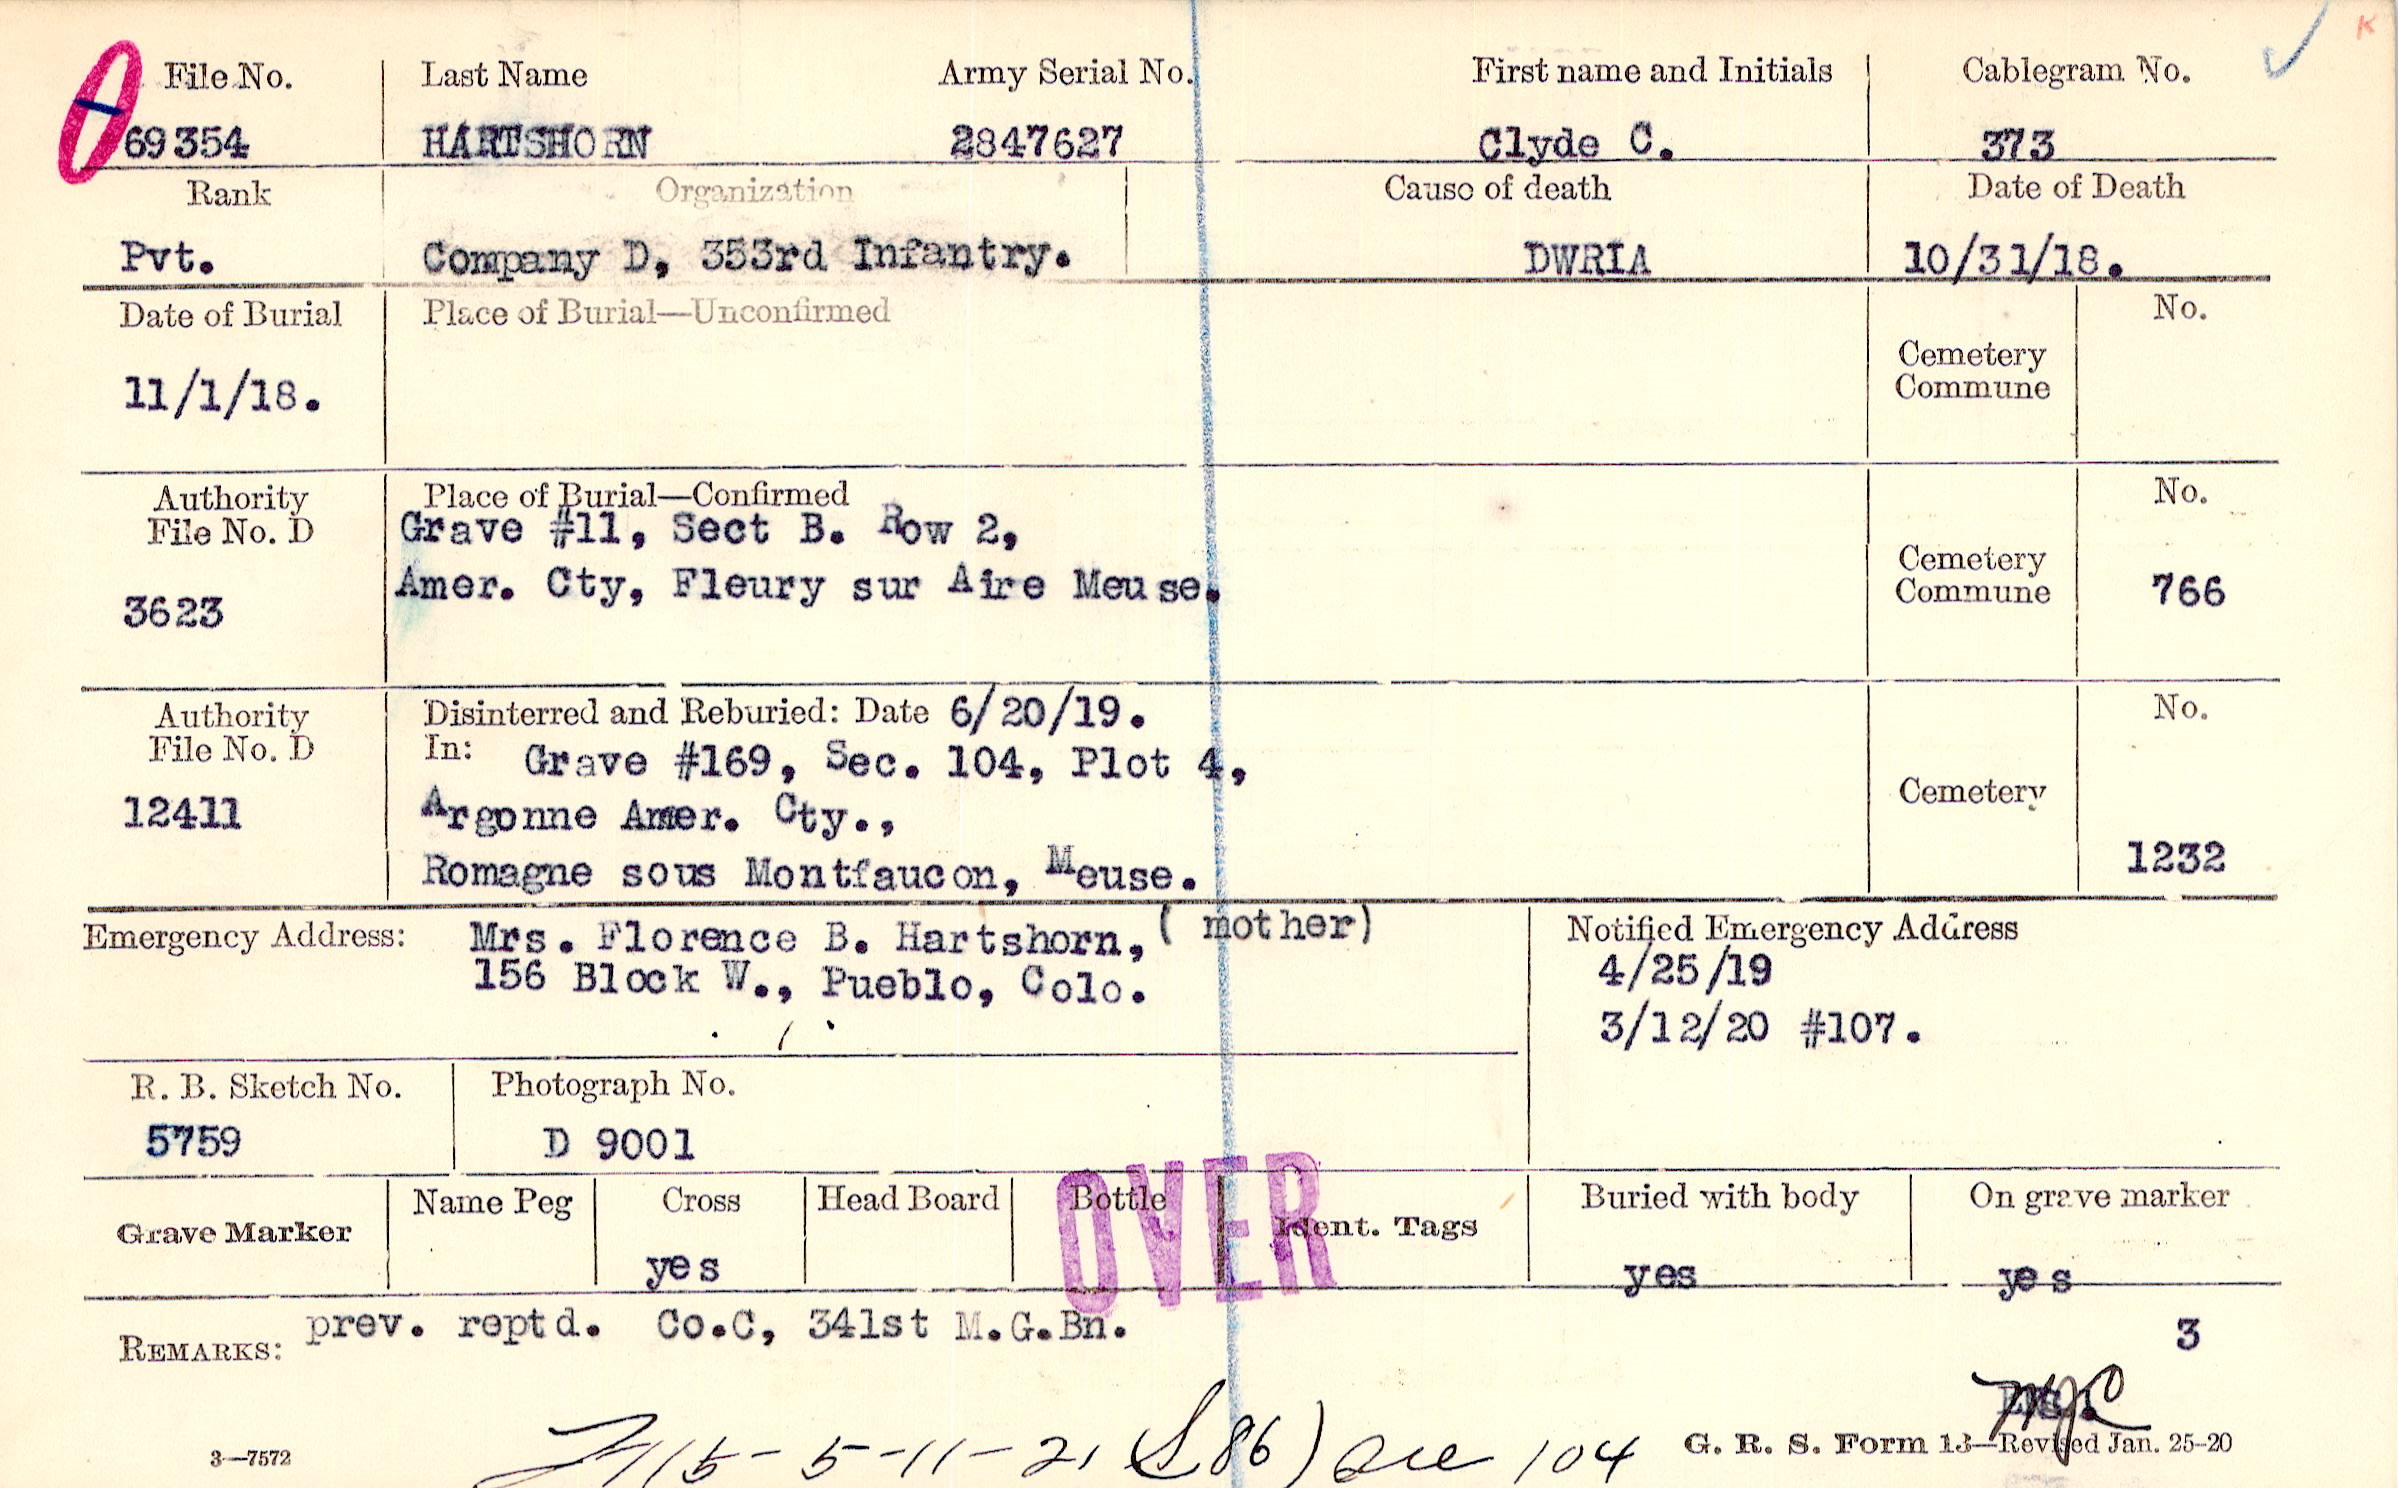 File No. Last Name Army Serial No. First name and Initials Cablegram No. K
69354 HARTSHORN 2847627 Clyde C. 373
Rank Organization Cause of death Date of Death
Pvt. Company D, 353rd Infantry. DWRIA 10/31/18.
Date of Burial Place of Burial—Unconfirmed No.
Cemetery
Commune
11/1/18.
Authority Place of Burial—Confirmed No.
File No. D Grave #11, Sect B. Row 2,
Amer. Cty, Fleury sur Aire Meuse.
Cemetery
Commune 766
3623
Authority Disinterred and Reburied: Date 6/20/19. No.
File No. D In: Grave #169, Sec. 104, Plot 4,
Cemetery
12411 Argonne Amer. Cty.,
Romagne sous Montfaucon, Meuse. 1232
Emergency Address: Mrs. Florence B. Hartshorn, ( mother) Notified Emergency Address
156 Block W., Pueblo, Colo. 4/25/19
3/12/20 #107.
R. B. Sketch No. Photograph No.
5759 D 9001
OVER
Grave Marker Name Peg Cross Head Board Bottle Ident. Tags Buried with body On grave marker
yes yes yes
REMARKS: prev. reptd. Co.C, 341st M.G.Bn. 3
115- 5-11-21 (S86) see 104
3—7572 G. R. S. Form 13—Revised Jan. 25-20